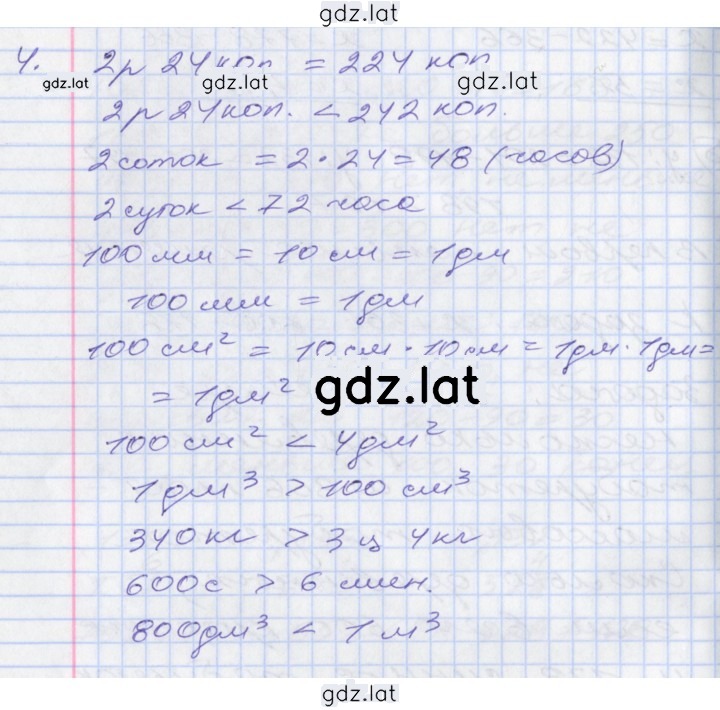 gdz.lat
4. 2р 24 коп = 224 коп
gdz.lat gdz.lat gdz.lat
2р 24 коп. < 242 коп.
2 соток = 2 · 24 = 48 (часов)
2 суток < 72 часа
100 мм = 10 см = 1 дм
100 мм = 1 дм
100 см² = 10 см · 10 см = 1 дм · 1 дм =
= 1 дм²
gdz.lat
100 см² < 4 дм²
1 дм³ > 100 см³
340 кг > 3 ц 4 кг
600 с > 6 мин.
800 дм³ < 1 м³
gdz.lat